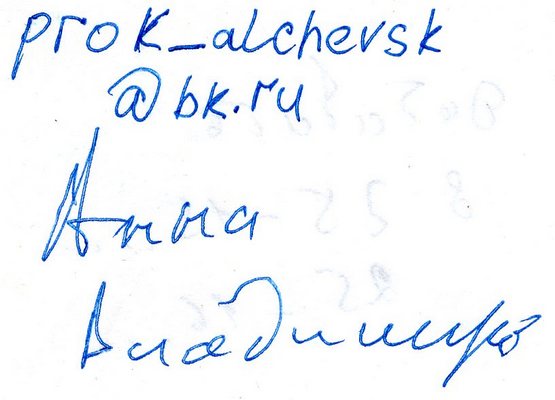 prok_alchevsk
@bk.ru
Анна